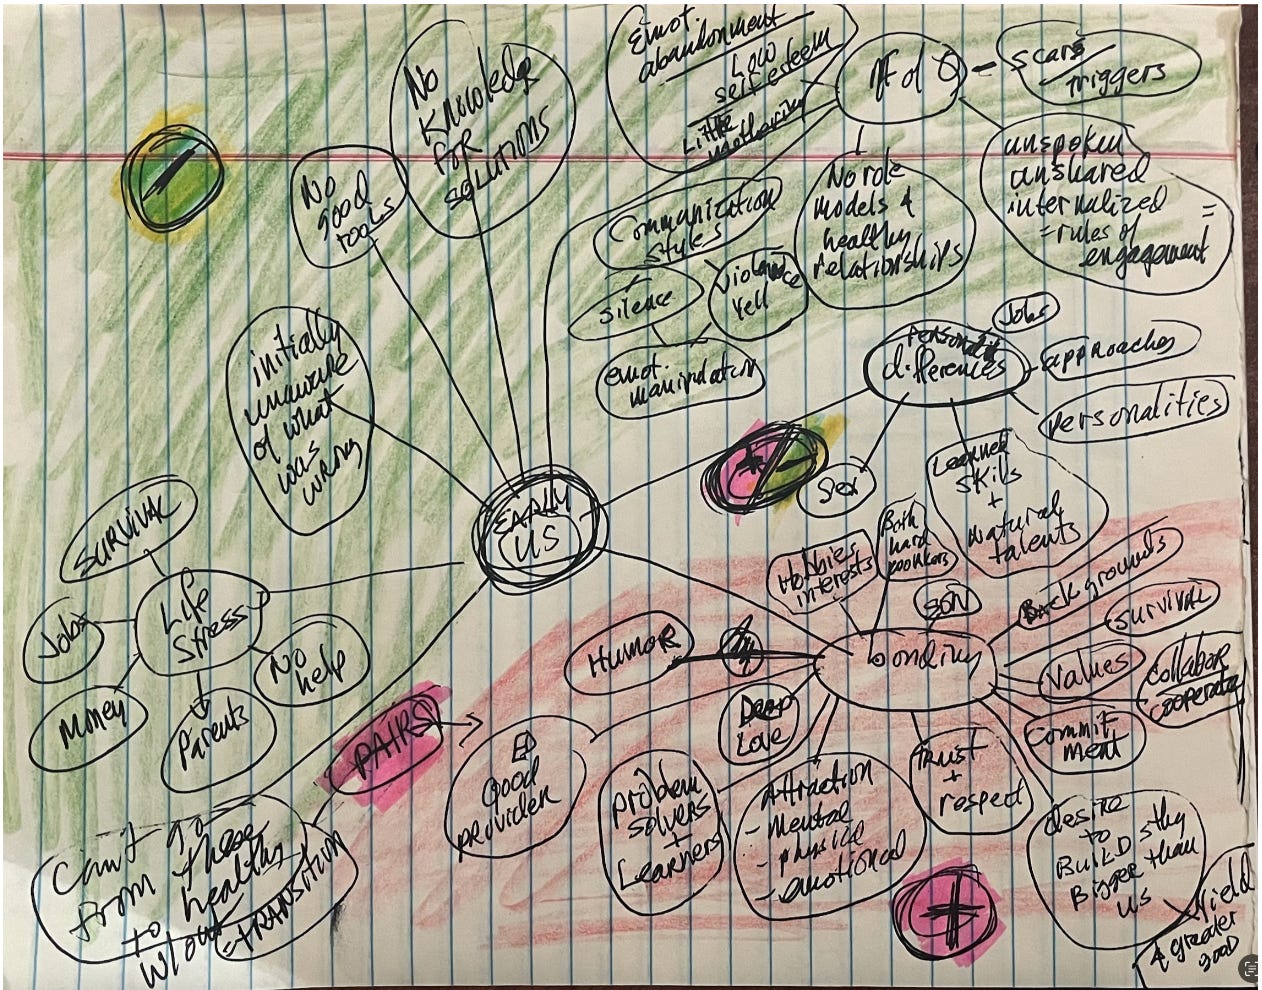 Emot.
abandonment
Low
self esteem
Little
mothering
scars
triggers
No
Knowledge
for
solutions
No
good
tools
Communication
styles
silence
violence
yell
emot.
manipulation
No role
models &
healthy
relationships
unspoken
unshared
internalized
= rules of =
engagement
initially
unaware
of what
was
wrong
Jobs
Personality
differences
approaches
Personalities
Sex
Learned
skills
+
Natural
talents
+
-
EARLY
US
SURVIVAL
Life
Stress
Jobs
Money
Parents
No
help
PAIRS
Can't go
from these
to healthy
w/out
TRANSITION
Hobbies
interests
Both
hard
workers
SON
Backgrounds
SURVIVAL
Values
Collabor
cooperate
Commit
ment
bonding
Humor
Deep
Love
Good
provider
problem
solvers
+
Learners
Attraction
- Mental
- physical
- emotional
trust
+
respect
desire
to
BUILD sthg
Bigger than
us
Yield
& greater
good
+